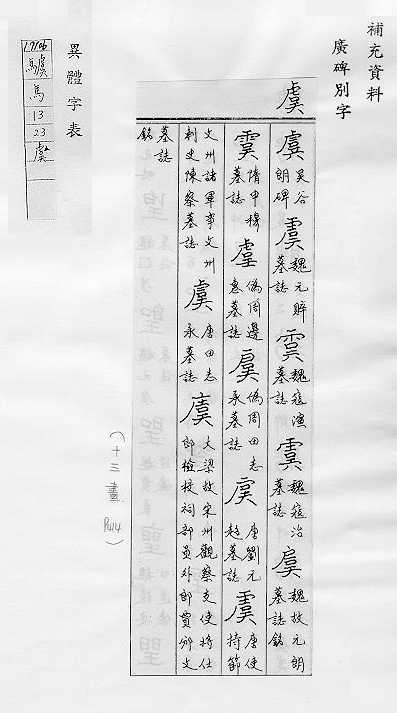 補充資料
廣碑別字
虞
虞 吳谷朗碑 虞 魏元賄墓誌 虞 魏寇演墓誌 虞 魏寇治墓誌 虞 魏故元朗墓誌銘
虞 隋甲穆墓誌 虞 偽周邊惠墓誌 虞 偽周田志承墓誌 虞 唐劉元超墓誌 虞 唐使持節
文州諸軍事文州刺史陳察墓誌 虞 唐田志承墓誌 虞 大梁故宋州觀察支使將仕郎檢校祠部員外郎賈邠文
墓誌銘
(十三畫)
異體字表
馬
13
23
虞